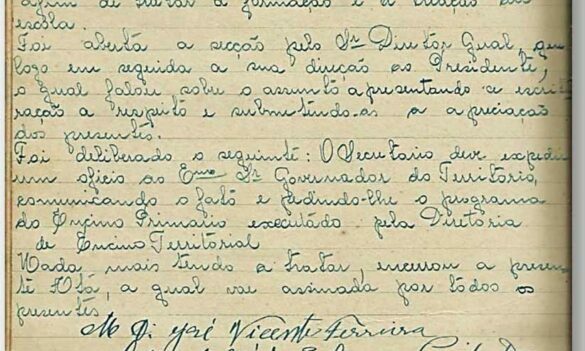 afim de tratar a formação e a creação da
escola.
Foi abertá a secção pelo Sr Diretor Gual, que
logo em seguida a sua direção ao Presidente,
o qual falou sobre o assunto apresentando a escritu
ração a respeito e submetendo-os a apreciação
dos presentes.
Foi deliberado o seguinte: O Secretario deve expedir
um oficio ao Exmo Sr Governador do Territorio,
comunicando o fato e pedindo-lhe o programa
do Encino Primario executado pela Diretoria
de Encino Territorial
Nada mais tendo a tratar, encerrou a presen-
te Ata, a qual vae assinada por todos os
presentes.
José Vicente Ferreira